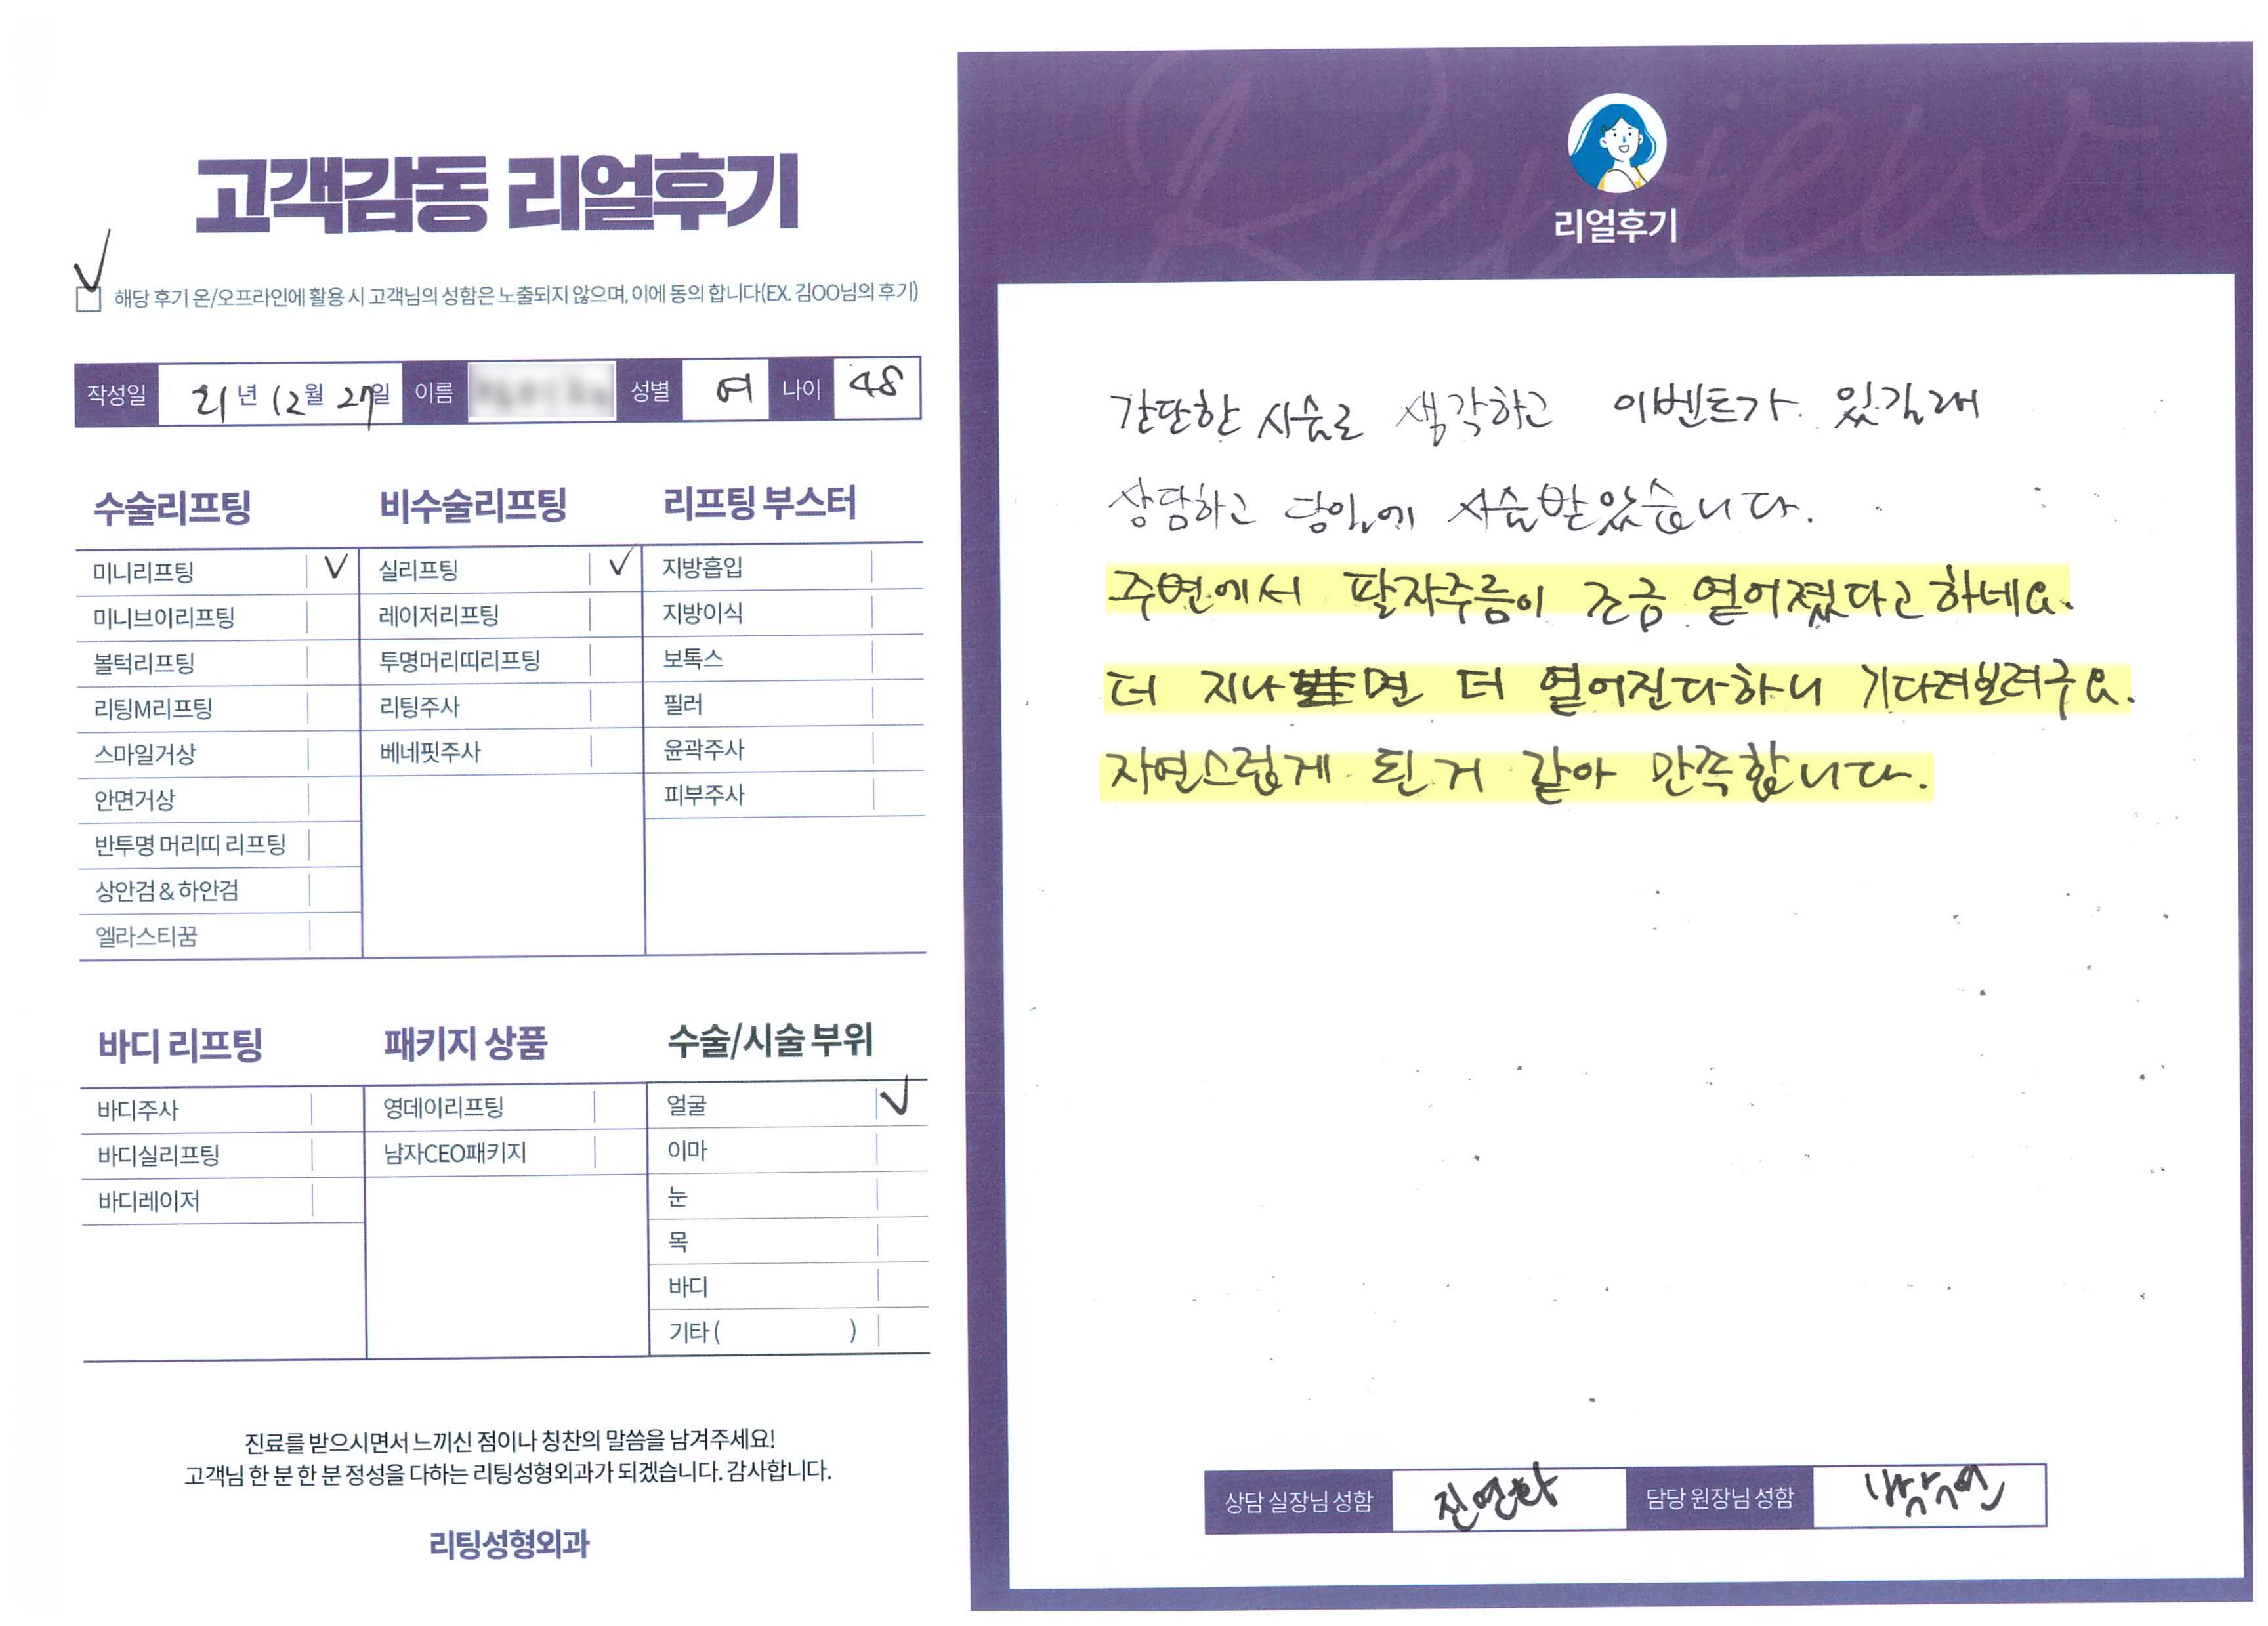 고객감동 리얼후기
해당 후기 온/오프라인에 활용 시 고객님의 성함은 노출되지 않으며, 이에 동의 합니다(EX. 김OO님의 후기)
작성일 21년 12월 27일 이름 성별 여 나이 48
수술리프팅 비수술리프팅 리프팅 부스터
미니리프팅 V 실리프팅 ✓ 지방흡입
미니브이리프팅 레이저리프팅 지방이식
볼턱리프팅 투명머리띠리프팅 보톡스
리팅M리프팅 리팅주사 필러
스마일거상 베네핏주사 윤곽주사
안면거상 피부주사
반투명 머리띠 리프팅
상안검 & 하안검
엘라스티꿈
바디 리프팅 패키지 상품 수술/시술 부위
바디주사 영데이리프팅 얼굴 ✓
바디실리프팅 남자CEO패키지 이마
바디레이저 눈
목
바디
기타 ( )
진료를 받으시면서 느끼신 점이나 칭찬의 말씀을 남겨주세요!
고객님 한 분 한 분 정성을 다하는 리팅성형외과가 되겠습니다. 감사합니다.
리팅성형외과
Review
리얼후기
간단한 시술로 생각하고 이벤트가 있길래
상담하고 당일에 시술받았습니다.
주변에서 팔자주름이 조금 옅어졌다고 하네요.
더 지나면 더 옅어진다하니 기다려보려구요.
자연스럽게 된거 같아 만족합니다.
상담 실장님 성함 진연화 담당 원장님 성함